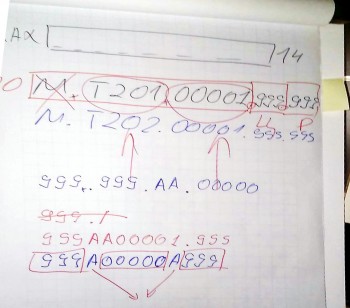 .AX 14
M.T201.00001.999.999
Ц P
M.T202.00001.999.999
999.999.AA.00000
999.1
999AA00001.999
999A00000A999